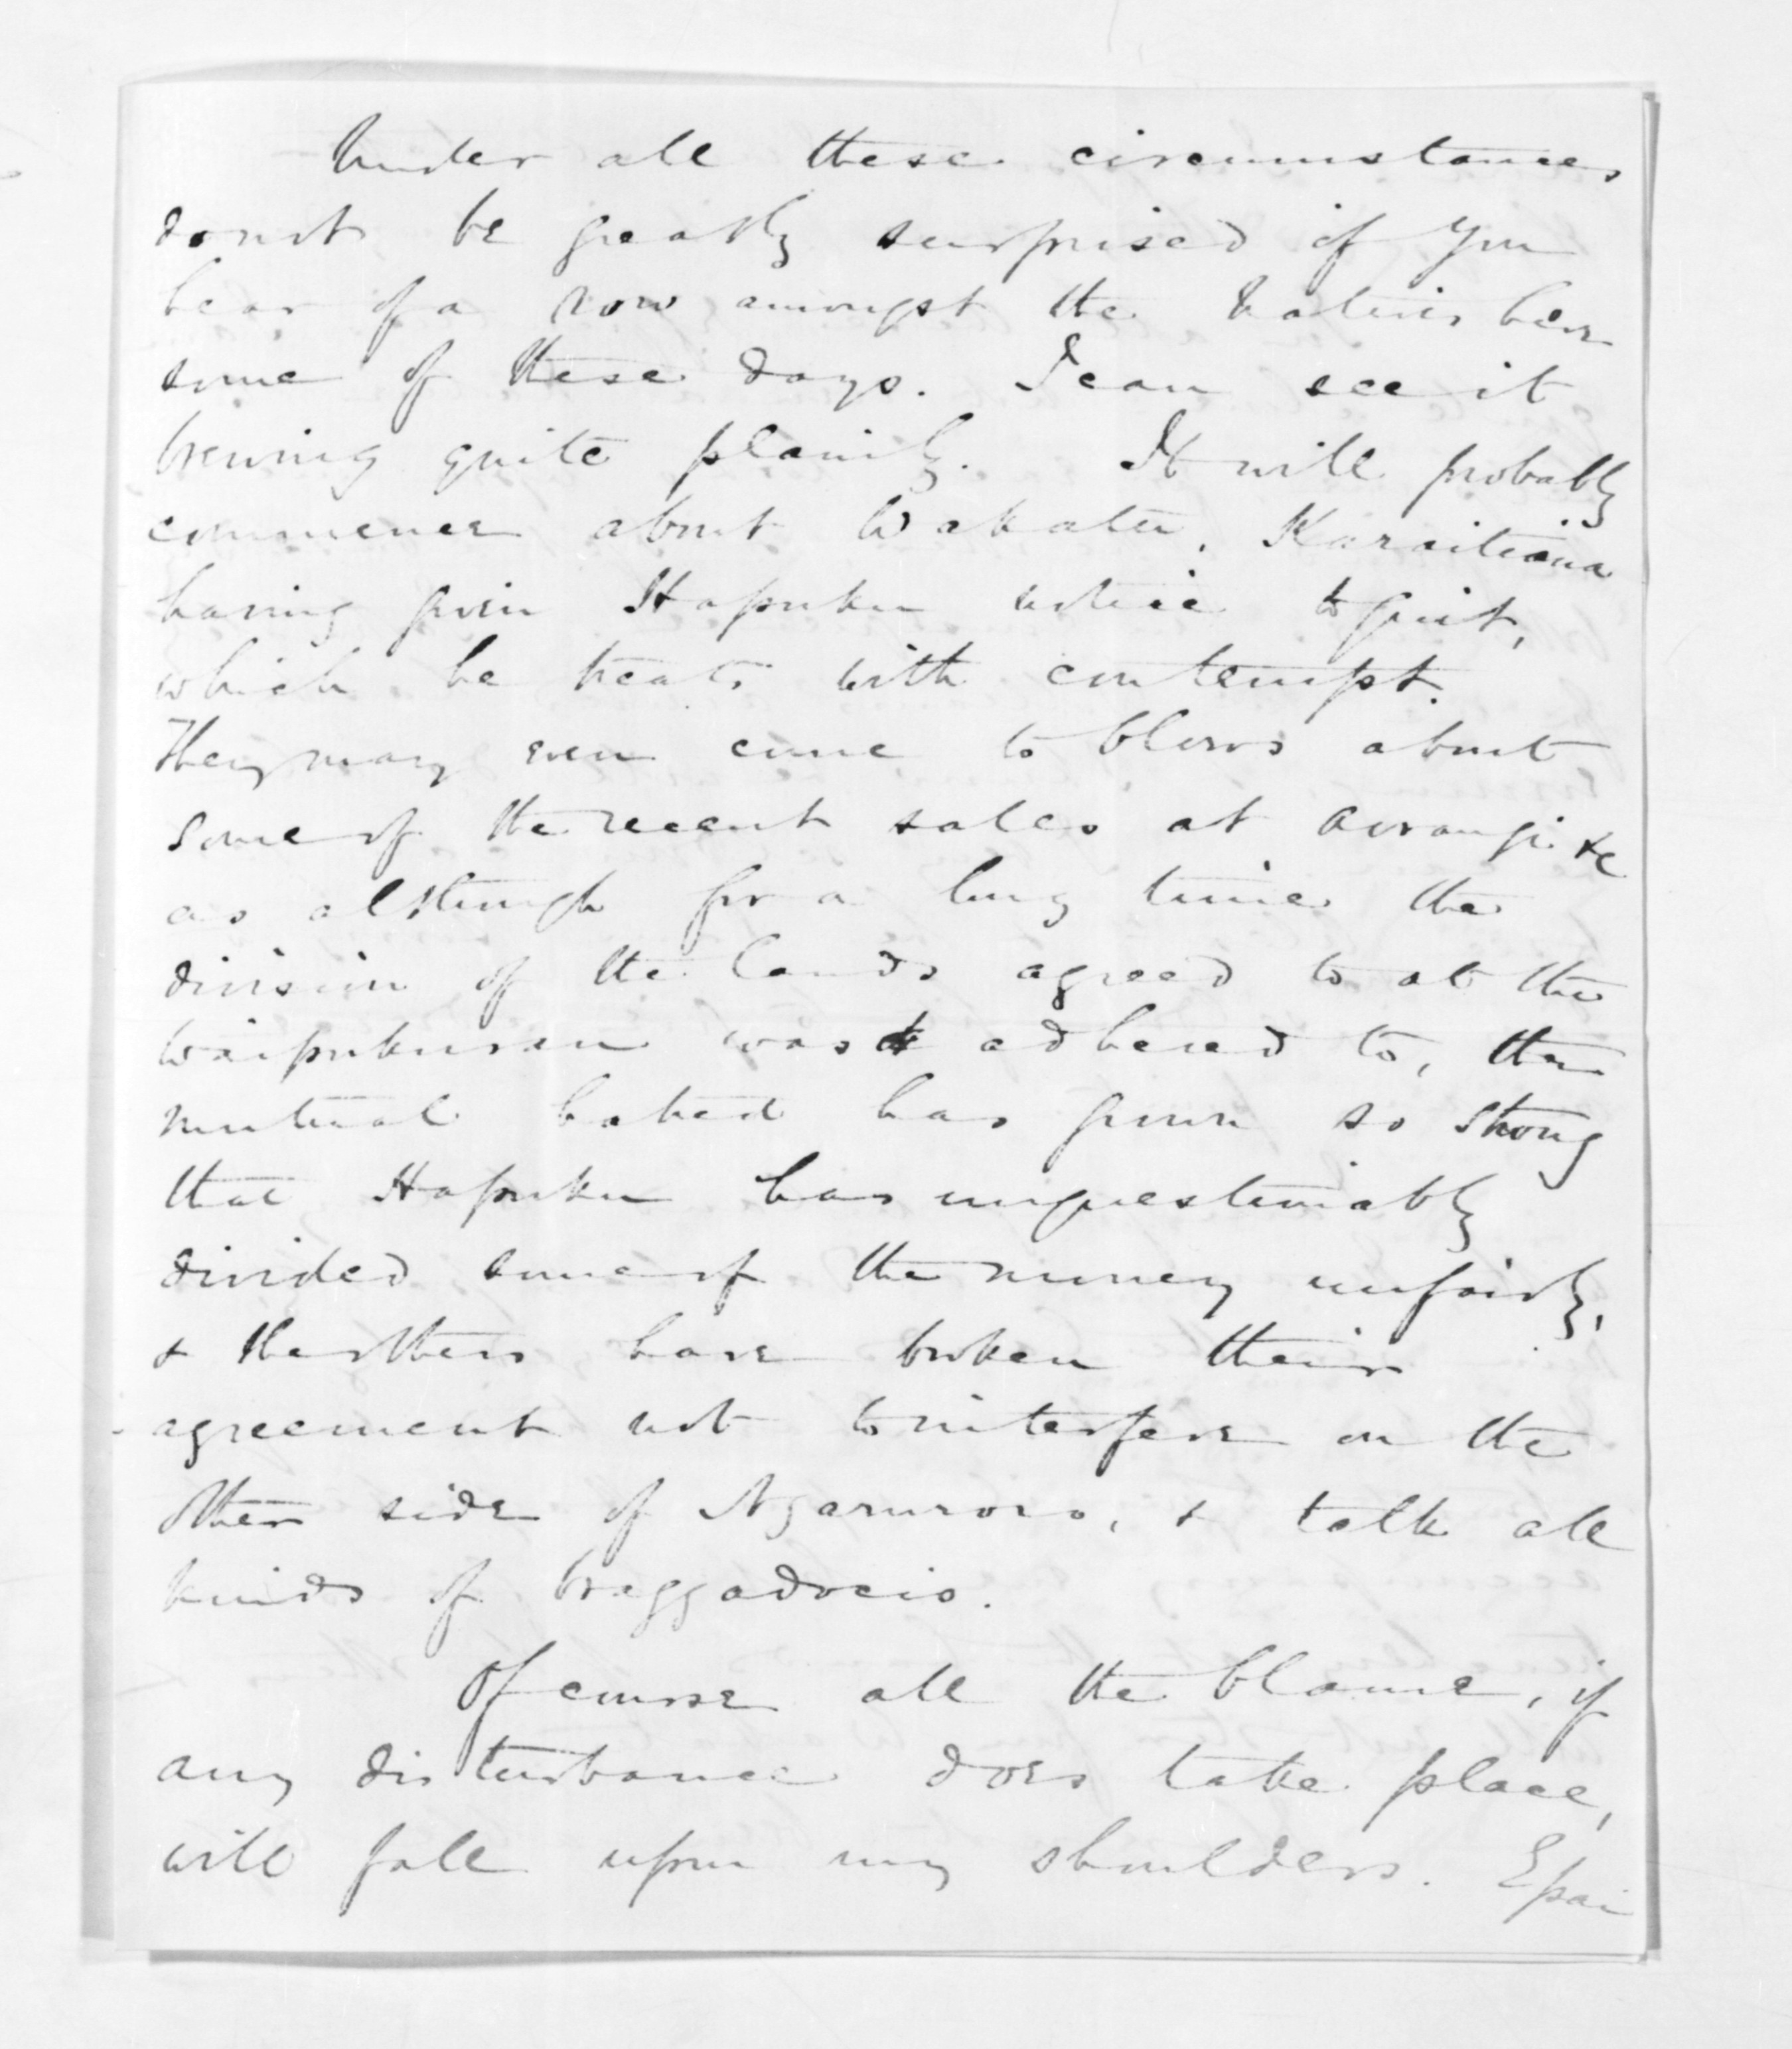 Under all these circumstances
donot be greatly surprised if you
hear of a row amongst the Natives here
some of these days. I can see it
brewing quite plainly. It will probably
commence about Wakatu, Karaitiana
having given Hapuku notice to quit,
which he treats with contempt.
They may even come to blows about
some of the recent sales at Aorangi &c
as although for a long time the
division of the lands agreed to at the
Waipukurau was adhered to, the
mutual hatred has grown so strong
that Hapuku has unquestionably
divided some of the money unfairly,
& the others have broken their
agreement not to interfere on the
other side of Ngaruroro, & talk all
kinds of braggadocio.
Of course all the blame, if
any disturbance does take place,
will fall upon my shoulders. Epai